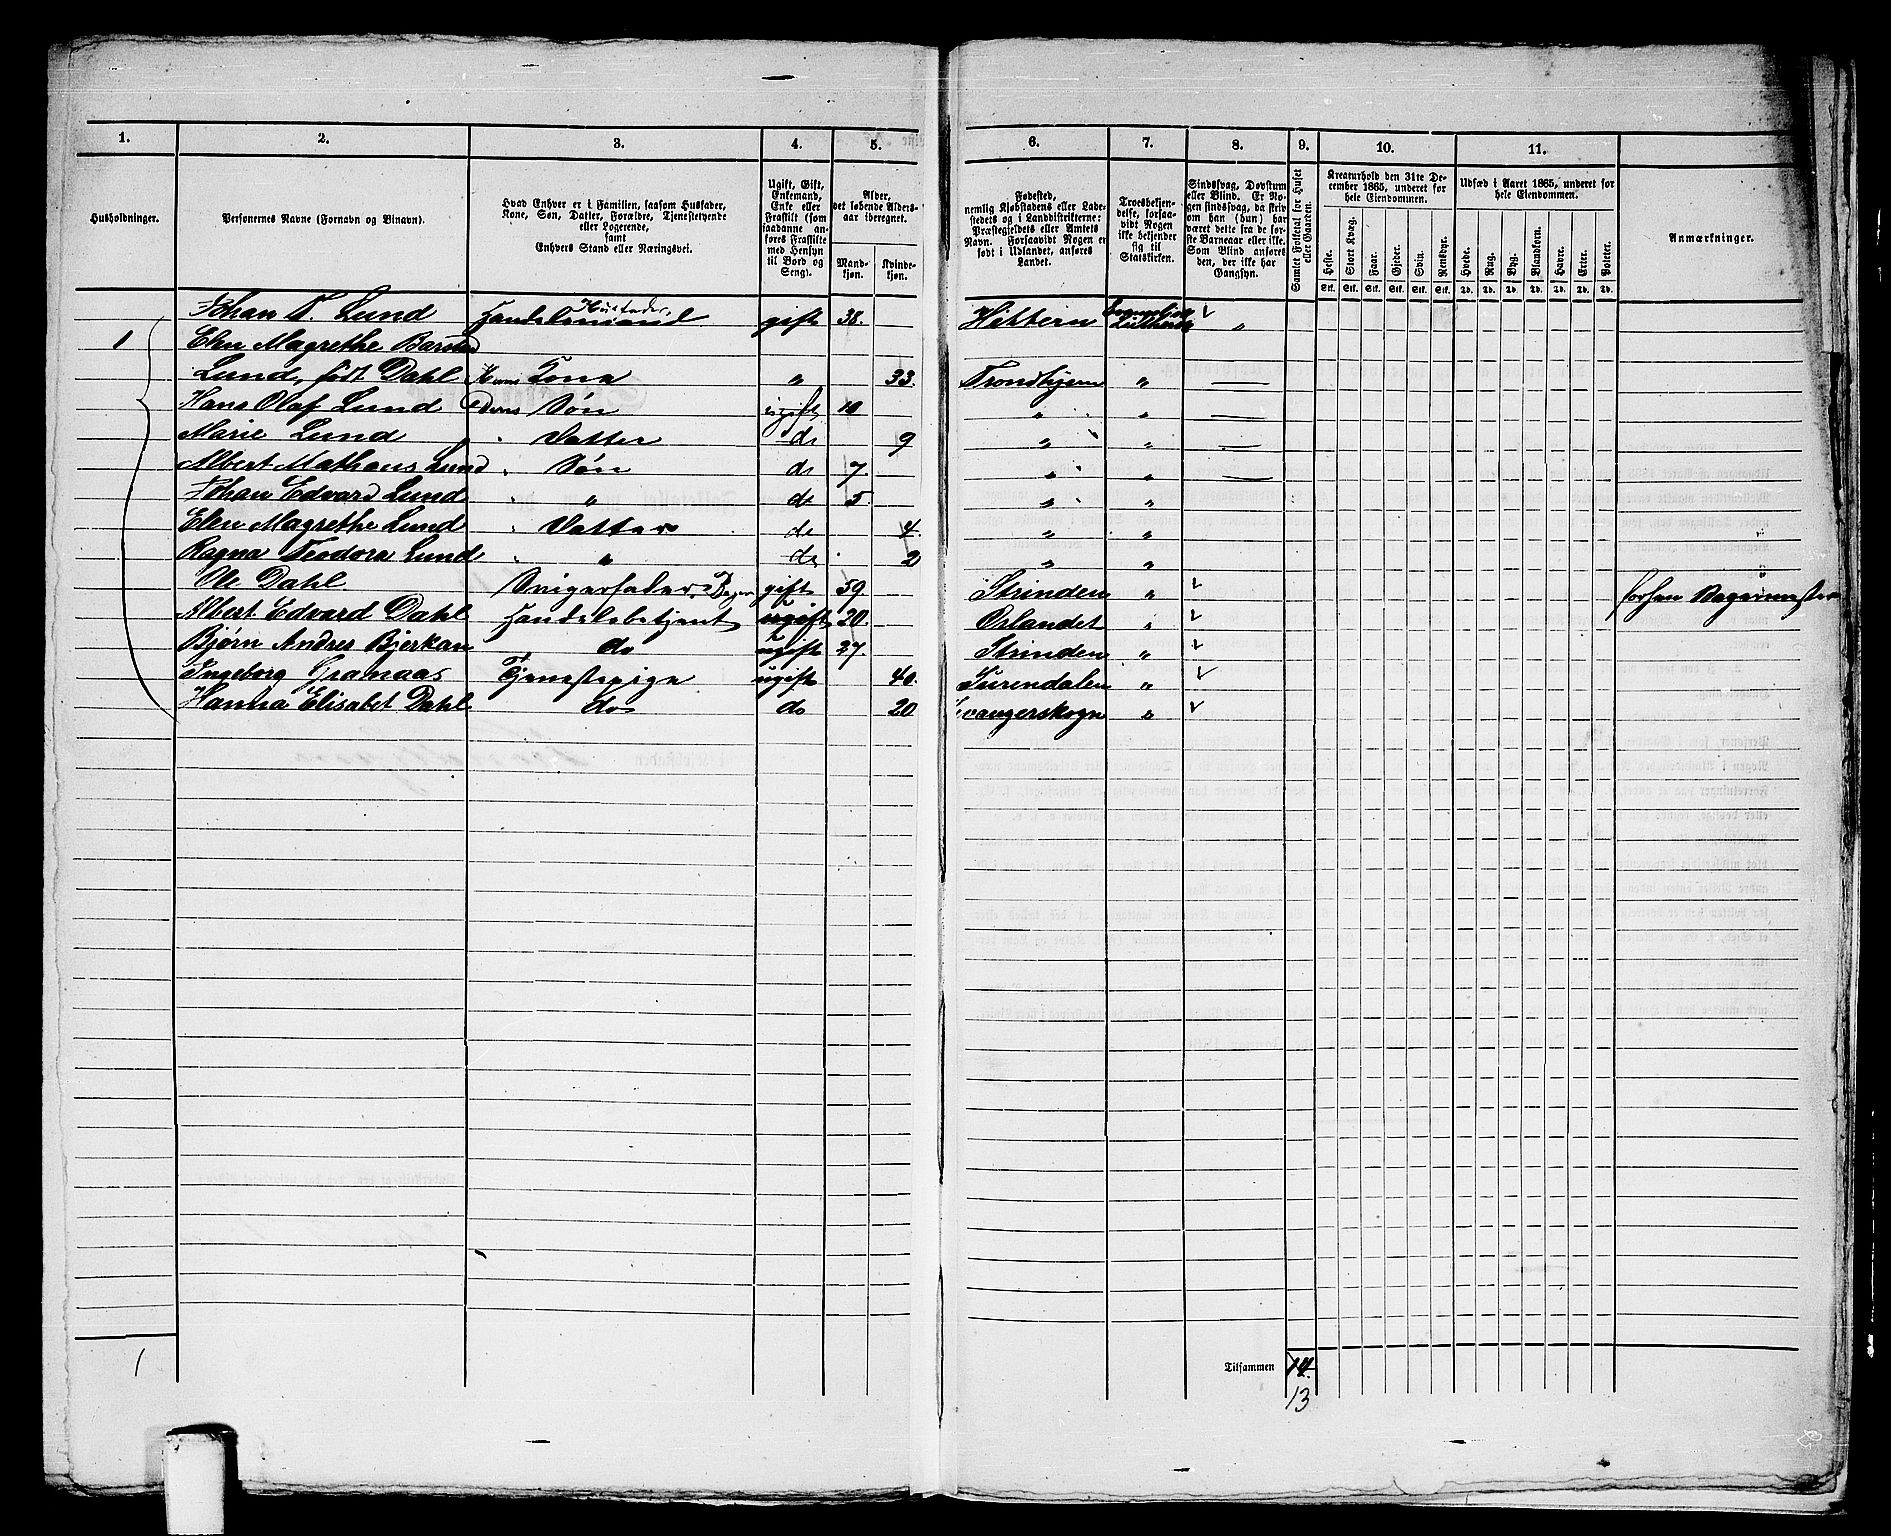 1. 2. 3. 4. 5. 6. 7. 8. 9. 10. 11.
Husholdninger.
Personernes Navne (Fornavn og Binavn).
Hvad Enhver er i Familien, saasom Husfader,
Kone, Søn, Datter, Forældre, Tjenestetyende
eller Logerende,
samt
Enhvers Stand eller Næringsvei.
Ugift, Gift,
Enkemand,
Enke eller
Fraskilt (som
saadanne an-
føres Fraskilte
med Hensyn
til Bord og
Seng).
Alder,
det løbende Alders-
aar iberegnet.
Mand-
kjøn.
Kvinde-
kjøn.
Fødested,
nemlig Kjøbstadens eller Lade-
stedets og i Landdistrikterne:
Præstegjeldets eller Amtets
Navn. Forsaavidt Nogen er
født i Udlandet, anføres
Landet.
Troesbekjen-
delse, forsaa-
vidt Nogen
ikke bekjender
sig til
Statskirken.
Sindssvag, Døvstum
eller Blind. Er No-
gen sindssvag, da skriv
om han (hun) har
været dette fra de før-
ste Barneaar eller ikke.
Som Blind anføres
den, der ikke har
Gangsyn.
Samlet Folketal for Huset
eller Gaarden.
Kreaturhold den 31te De-
cember 1865, underet for
hele Eiendommen.
Heste. Stort Kvæg. Faar. Gjeder. Sviin. Rensdyr.
Stk. Stk. Stk. Stk. Stk. Stk.
Udsæd i Aaret 1865, underet for
hele Eiendommen.
Hvede. Rug. Byg. Blandkorn. Havre. Erter. Poteter.
Td. Td. Td. Td. Td. Td. Td.
Anmærkninger.
Johan T. Lund Husfader, Handelsmand gift 38. Hittern Evangelisk Luthersk "
1 Elen Magrethe
Lund, født Dahl Hans Kone " 33. Trondhjem "
Hans Olaf Lund Deres Søn ugift 10 " "
Marie Lund " Datter do 9 " "
Albert Mathæus Lund " Søn do 7 " "
Johan Edvard Lund " do 5 " "
Elen Magrethe Lund " Datter do 4. " "
Ragna Teodora Lund " " do 2 " "
Ole Dahl Svigerfader, Bager gift 59 Strinden " forhen Bagermester
Albert Edvard Dahl Handelsbetjent ugift 20. Ørlandet "
Bjørn Andres Bjerkan do ugift 27. Strinden "
Ingeborg Gramaas Tjenestepige ugift 40. Surendalen "
Hanna Elisabet Dahl do do 20 "
1
Tilsammen 14.
13